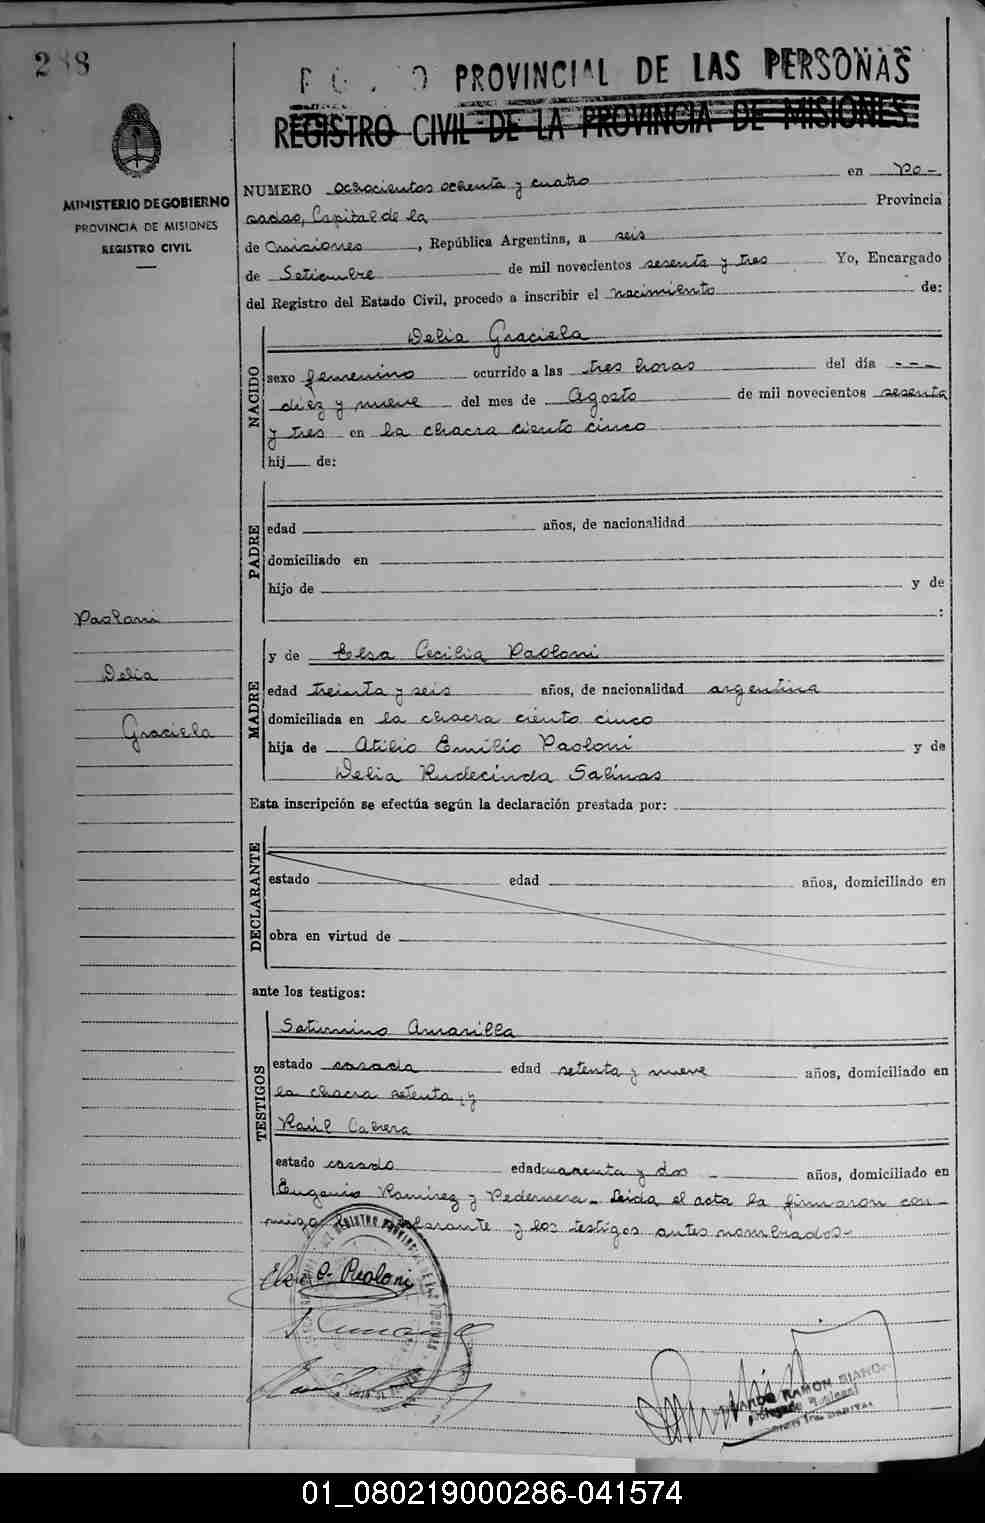 288
PROVINCIAL DE LAS PERSONAS
REGISTRO CIVIL DE LA PROVINCIA DE MISIONES
MINISTERIO DE GOBIERNO
PROVINCIA DE MISIONES
REGISTRO CIVIL
NUMERO ochocientos ochenta y cuatro en Po-
sadas, Capital de la Provincia
de Misiones, República Argentina, a seis
de Setiembre de mil novecientos sesenta y tres Yo, Encargado
del Registro del Estado Civil, procedo a inscribir el nacimiento de:
NACIDO
Delia Graciela
sexo femenino ocurrido a las tres horas del día ---
diez y nueve del mes de Agosto de mil novecientos sesenta
y tres en la chacra ciento cinco
hij de:
PADRE
edad años, de nacionalidad
domiciliado en
hijo de y de
:
Paoloni
Delia
Graciela
MADRE
y de Elsa Cecilia Paoloni
edad treinta y seis años, de nacionalidad argentina
domiciliada en la chacra ciento cinco
hija de Atilio Emilio Paoloni y de
Delia Rudecinda Salinas
Esta inscripción se efectúa según la declaración prestada por:
DECLARANTE
estado edad años, domiciliado en
obra en virtud de
ante los testigos:
TESTIGOS
Saturnino Amarilla
estado casada edad setenta y nueve años, domiciliado en
la chacra setenta, y
Raúl Cabrera
estado casado edad cuarenta y dos años, domiciliado en
Eugenio Ramirez y Pedernera - Leida el acta la firmaron con-
migo la declarante y los testigos antes nombrados-
Elsa C. Paoloni
RAMON
01_080219000286-041574